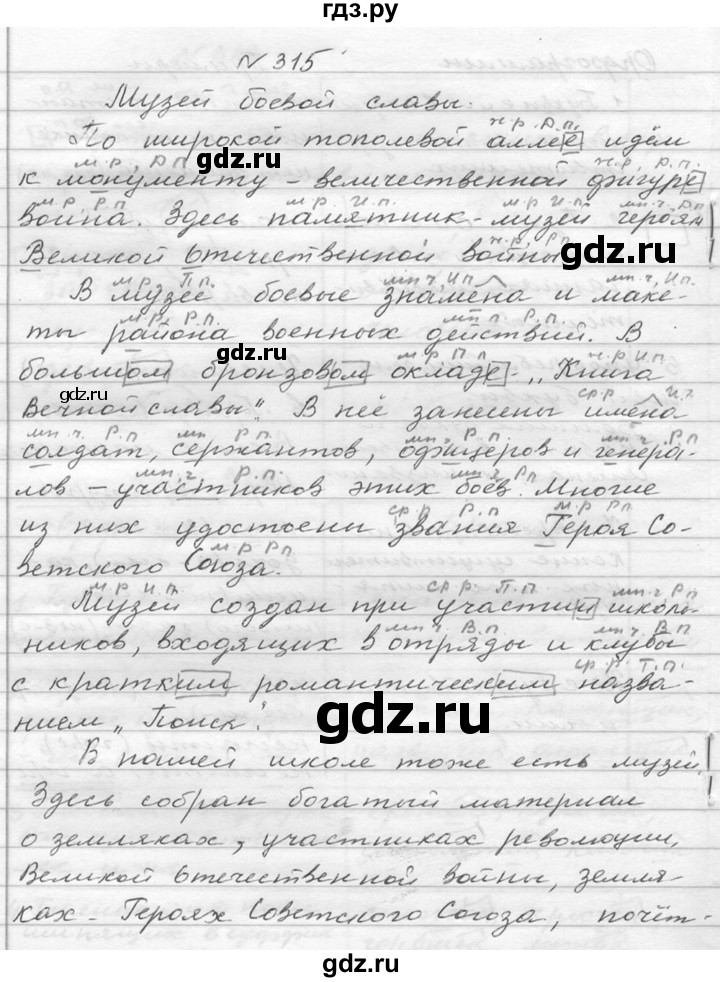 гдз.ру
N 315
Музей боевой славы.
ж.р. Д.п.
По широкой тополевой аллее идём
м.р. Д.п. ж.р. Д.п.
к монументу – величественной фигуре
м.р. Р.п. м.р. И.п. мн.ч. Д.п.
воина. Здесь памятник-музей героям
ж.р. Р.п.
Великой Отечественной войны.
gdz.ru
м.р. П.п. мн.ч. И.п. мн.ч. И.п.
В музее боевые знамёна и маке-
м.р. Р.п. мн.ч. Р.п.
ты района военных действий. В
gdz.ru
м.р. П.п. ж.р. И.п.
большом бронзовом окладе – „Книга
gdz.ru
ср.р. И.п.
Вечной славы“. В неё занесены имена
мн.ч. Р.п. мн. Р.п. мн.ч. Р.п.
солдат, сержантов, офицеров и генера-
gdz.ru
мн.ч. Р.п. мн.ч. Р.п.
лов – участников этих боёв. Многие
ср.р. Р.п. м.р. Р.п.
из них удостоены звания Героя Со-
м.р. Р.п.
ветского Союза.
м.р. И.п. ср.р. П.п. мн.ч. Р.п.
Музей создан при участии школь-
мн.ч. В.п. мн.ч. В.п.
ников, входящих в отряды и клубы
ср.р. Т.п.
с кратким романтическим назва-
нием „Поиск“.
gdz.ru
В нашей школе тоже есть музей.
gdz.ru
Здесь собран богатый материал
о земляках, участниках революции,
Великой Отечественной войны, земля-
ках – Героях Советского Союза, почёт-
gdz.ru